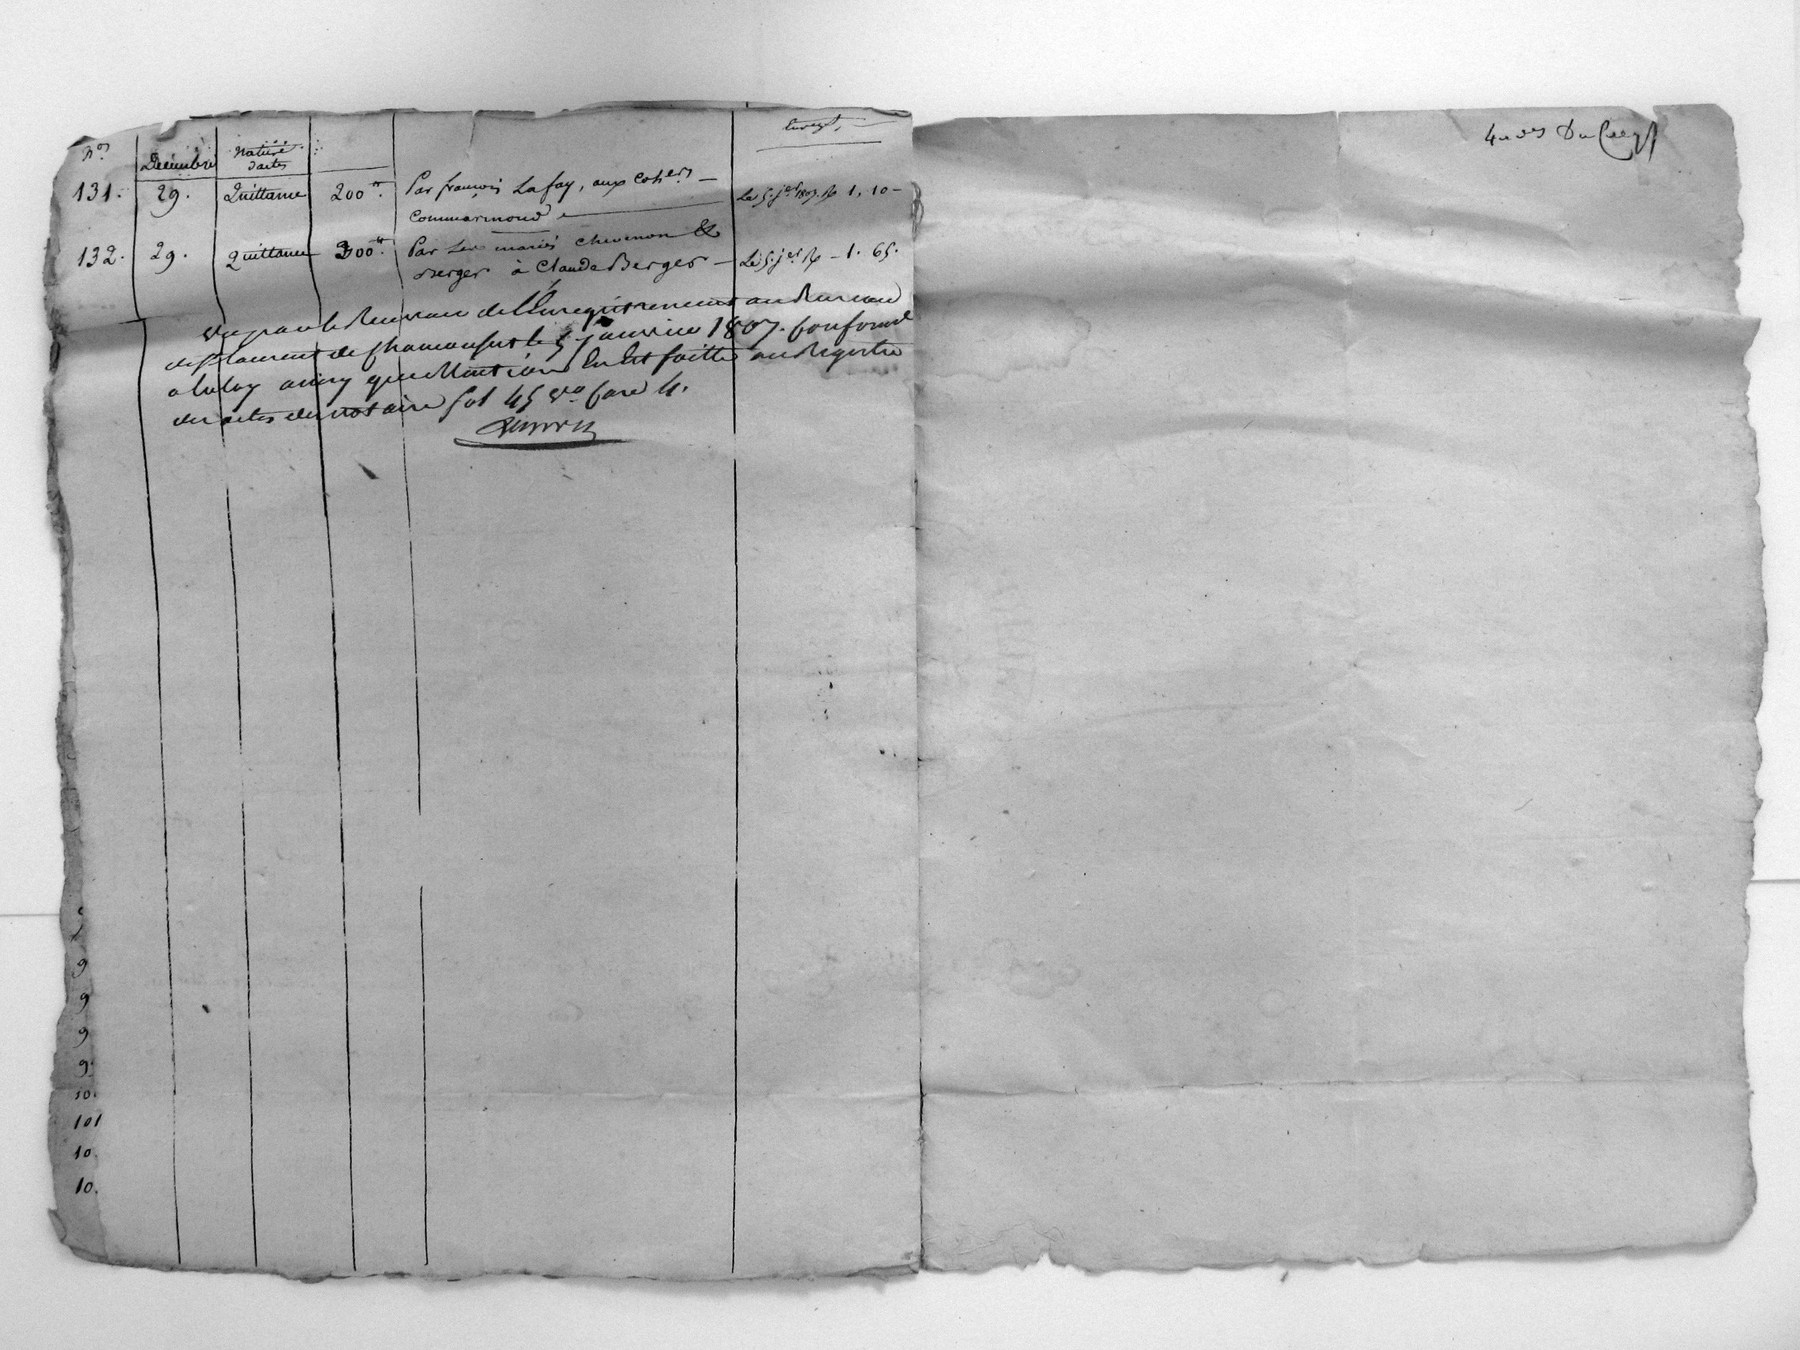 nos Décembre Nature d'actes Enregt.
131. 29. Quittance 200tt. Par françois Lafay, aux cohers Le 5. jer 1807. R 1. 10
Commarmond
132. 29. Quittance 300tt. Par Les mariés chevenon &
Berger à Claude Berger Le 5. jer R 1. 65.
Vu par le Receveur de l'Enregistrement au Bureau
de St laurent de Chamousset le 5 janvier 1807. conforme
a la loy ainsy que Mention En Est faitte au Registre
des actes des notaire fol 45 vo Case 4.
9
9
9
9.
10.
101
10.
10.